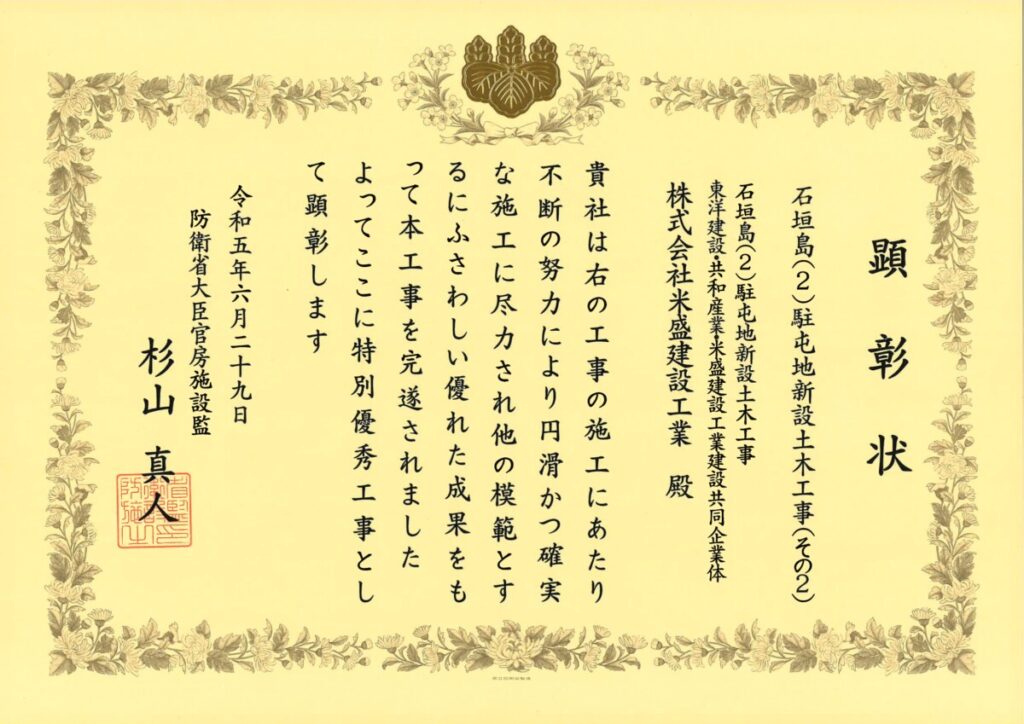 顕彰状
石垣島(2)駐屯地新設土木工事(その2)
石垣島(2)駐屯地新設土木工事
東洋建設・共和産業・米盛建設工業建設共同企業体
株式会社米盛建設工業 殿
貴社は右の工事の施工にあたり
不断の努力により円滑かつ確実
な施工に尽力され他の模範とす
るにふさわしい優れた成果をも
って本工事を完遂されました
よってここに特別優秀工事とし
て顕彰します
令和五年六月二十九日
防衛省大臣官房施設監
杉山 真人